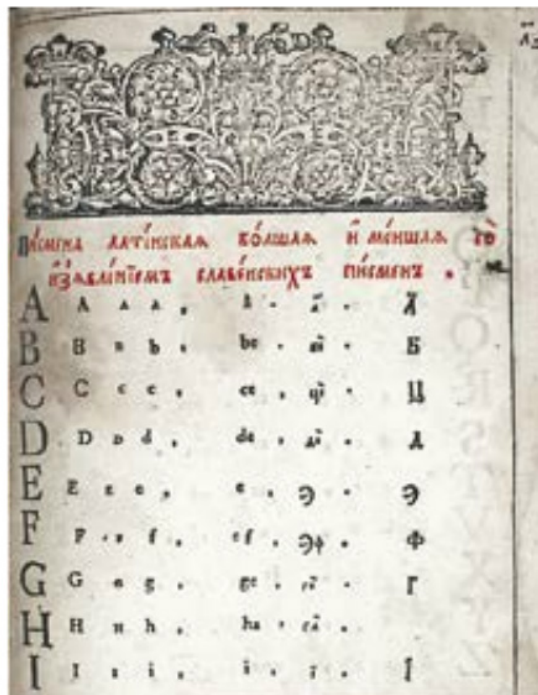 Писмена латинская болшая и меншая со
изявленїемъ славенскихъ писменъ .
A A A a , a . а . А
B B B b . be . . Б
C C c c , ce , . Ц
D D D d , de . . Д
E E e e , e . Э . Э
F F f , ef . Эф . Ф
G G G g , ge . . Г
H H H h . ha .
I I I i . i . ї . Ї